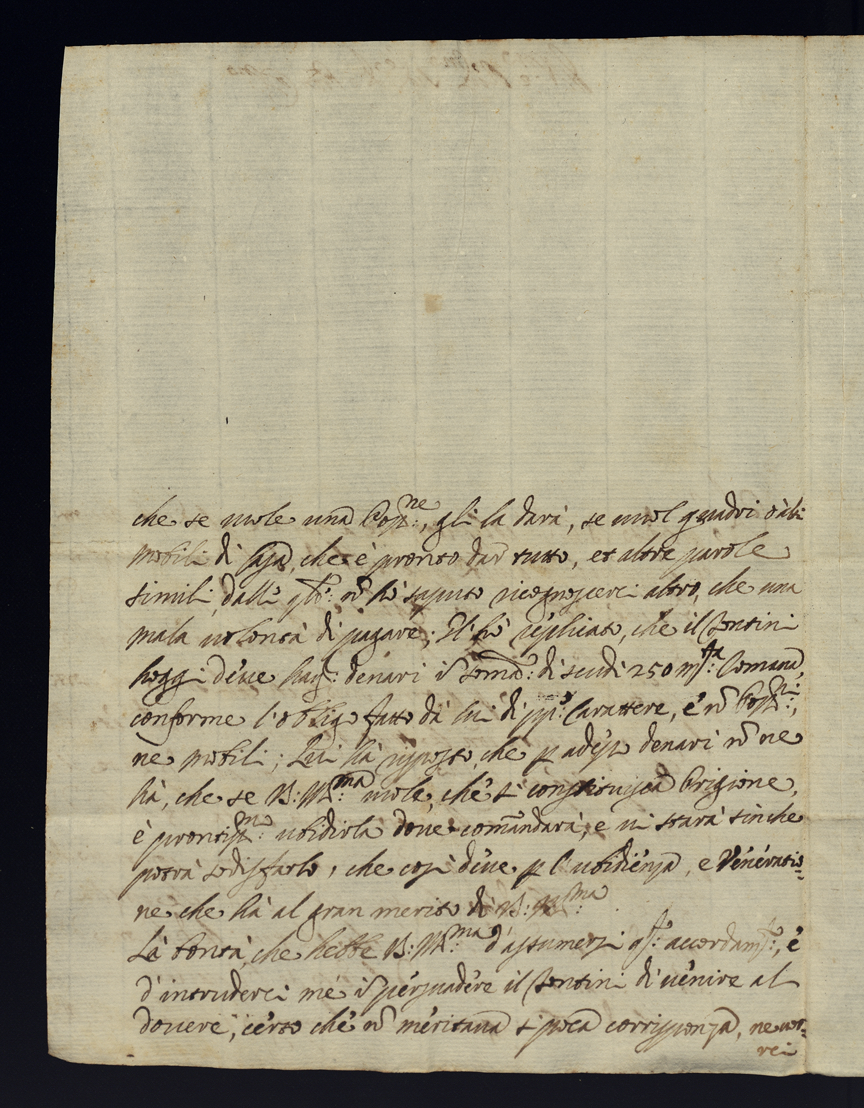 che se vuole una Posi:ne, gli la darà, se vuol quadri ò altri
mobili di casa, che è pronto dar tutto, et altre parole
simili, dalle qli: nõ hò saputo ricognoscerci altro, che una
mala volontà di pagare; Gl'hò replicato, che il Pontini
hoggi deve hav: denari i soma: di scudi 250 m:ta Romana,
conforme l'obligo fatto da lui di pp:o Carattere, é nõ
ne mobili; Lui hà risposto, che p adesso denari nõ ne
hà, che se V:M:ma vuole, che si constituisca Prigione,
è prontiss:mo ubidirla dove comãndarà, e vi starà sin che
potrà sodisfarlo, che così deve p l'ubidienza, e Veneratio=
ne che hà al gran merito di V:M:ma
La bontà, che hebbe V:M:ma d'assumersi accordam:to, é
d'intruderci me i persuadere il Pontini di venire al
dovere, certo che nõ meritava sì poca corrisponza, ne vor=
rei